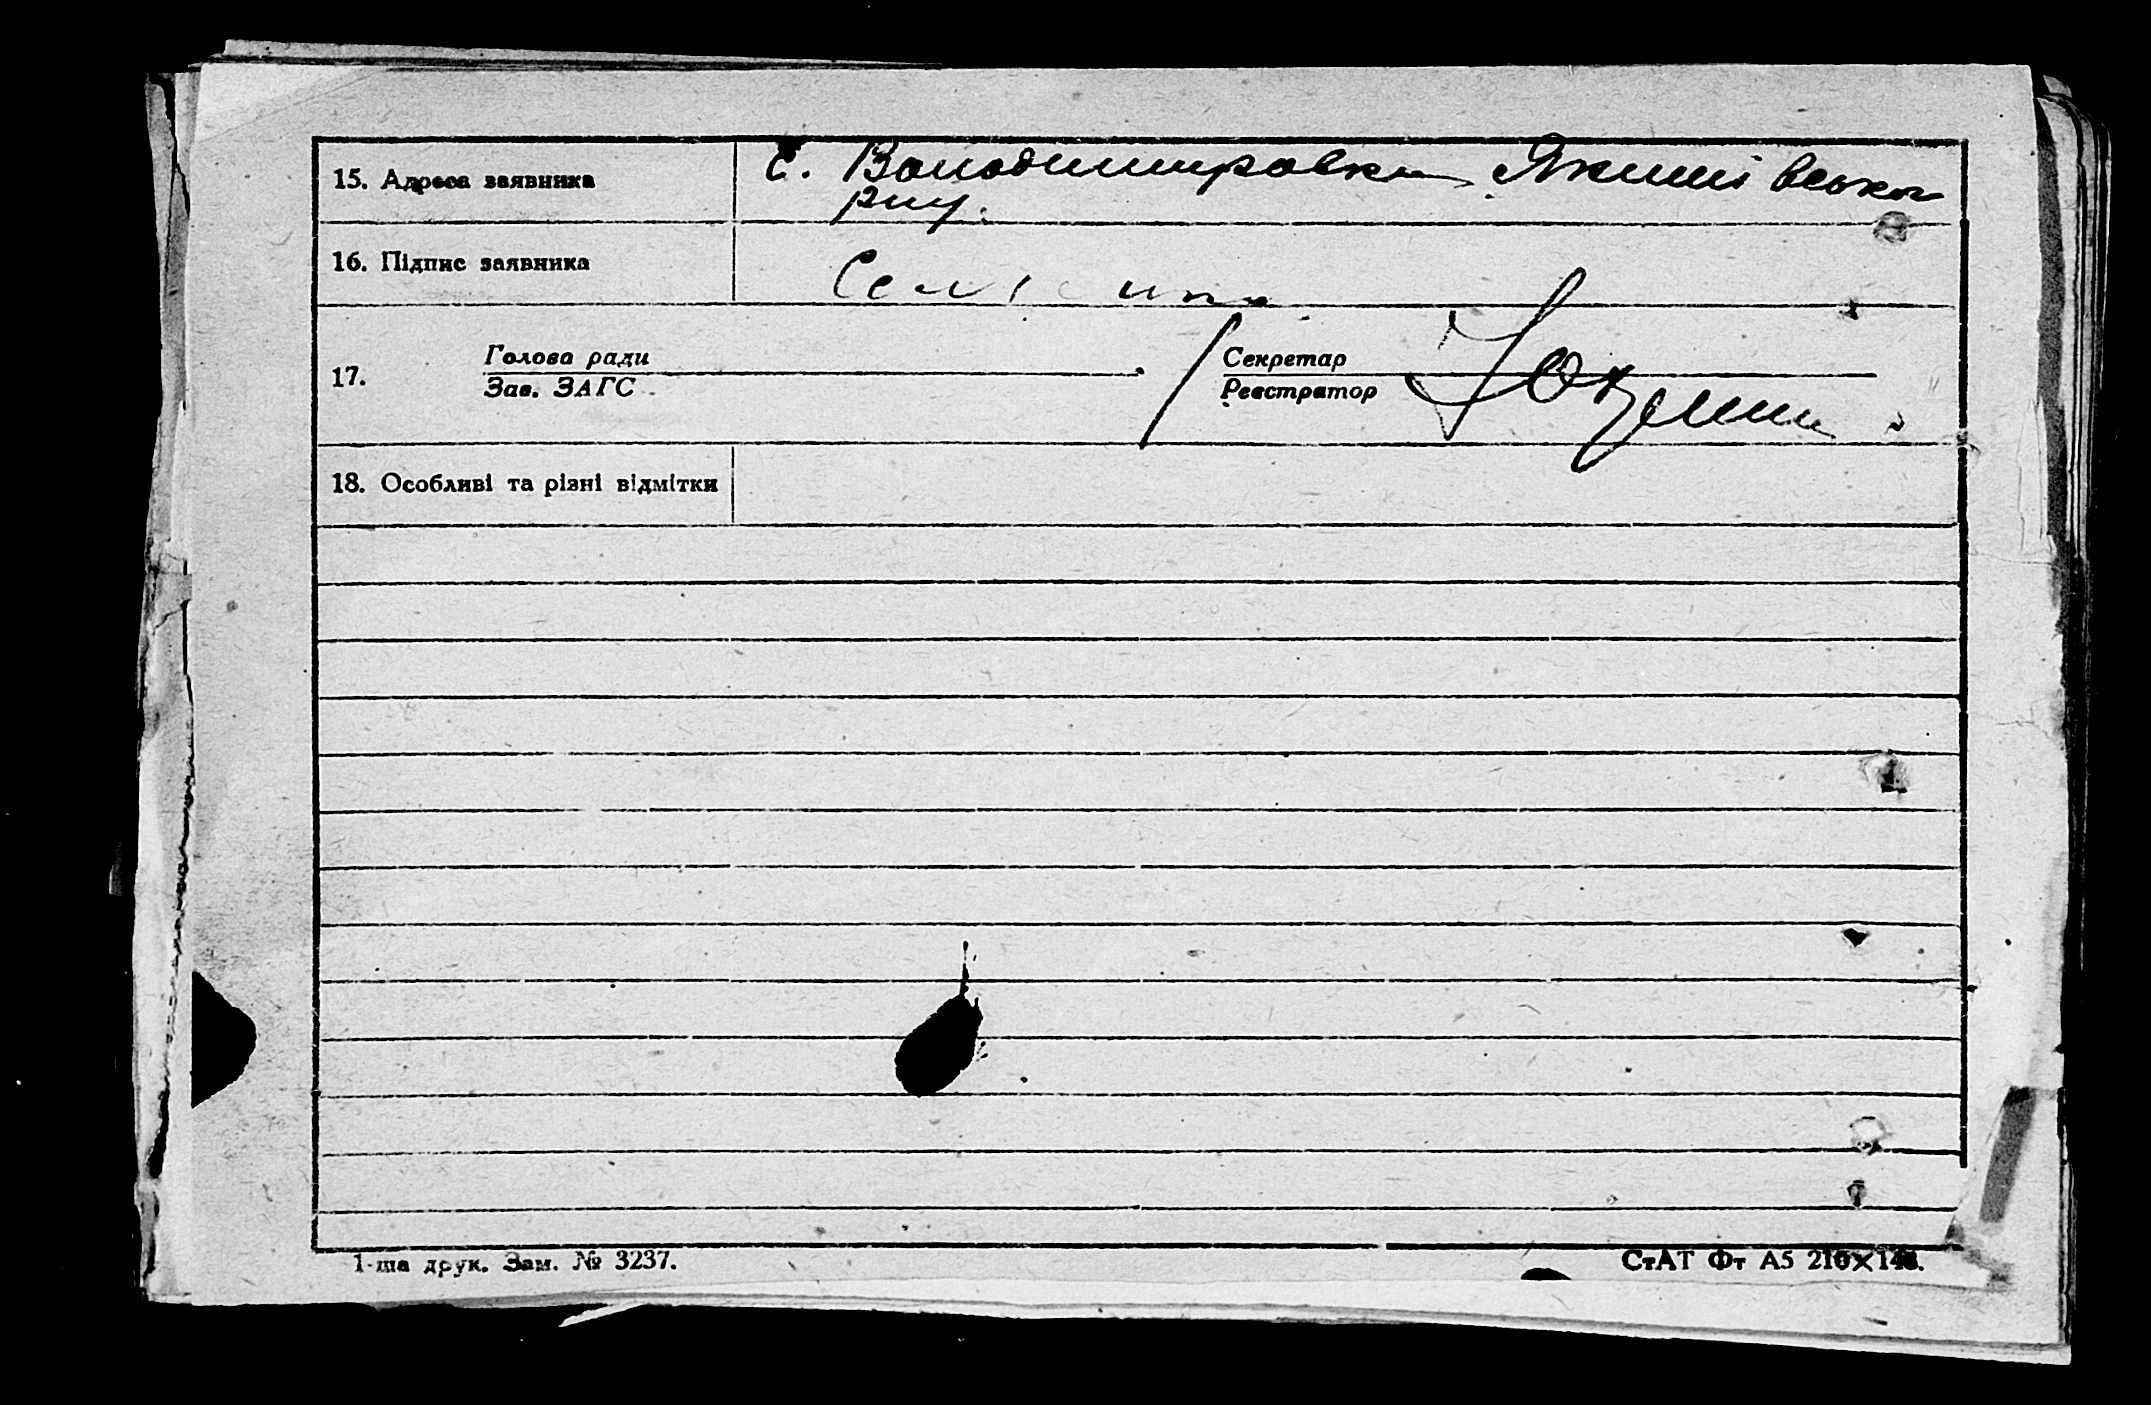 15. Адреса заявника
с. Володимировка Якимівськог
рну.
16. Підпис заявника
17.
Голова ради
Зав. ЗАГС
Секретар
Реєстратор
18. Особливі та різні відмітки
1-ша друк. Зам. № 3237.
СтАТ Фт А5 210×148.